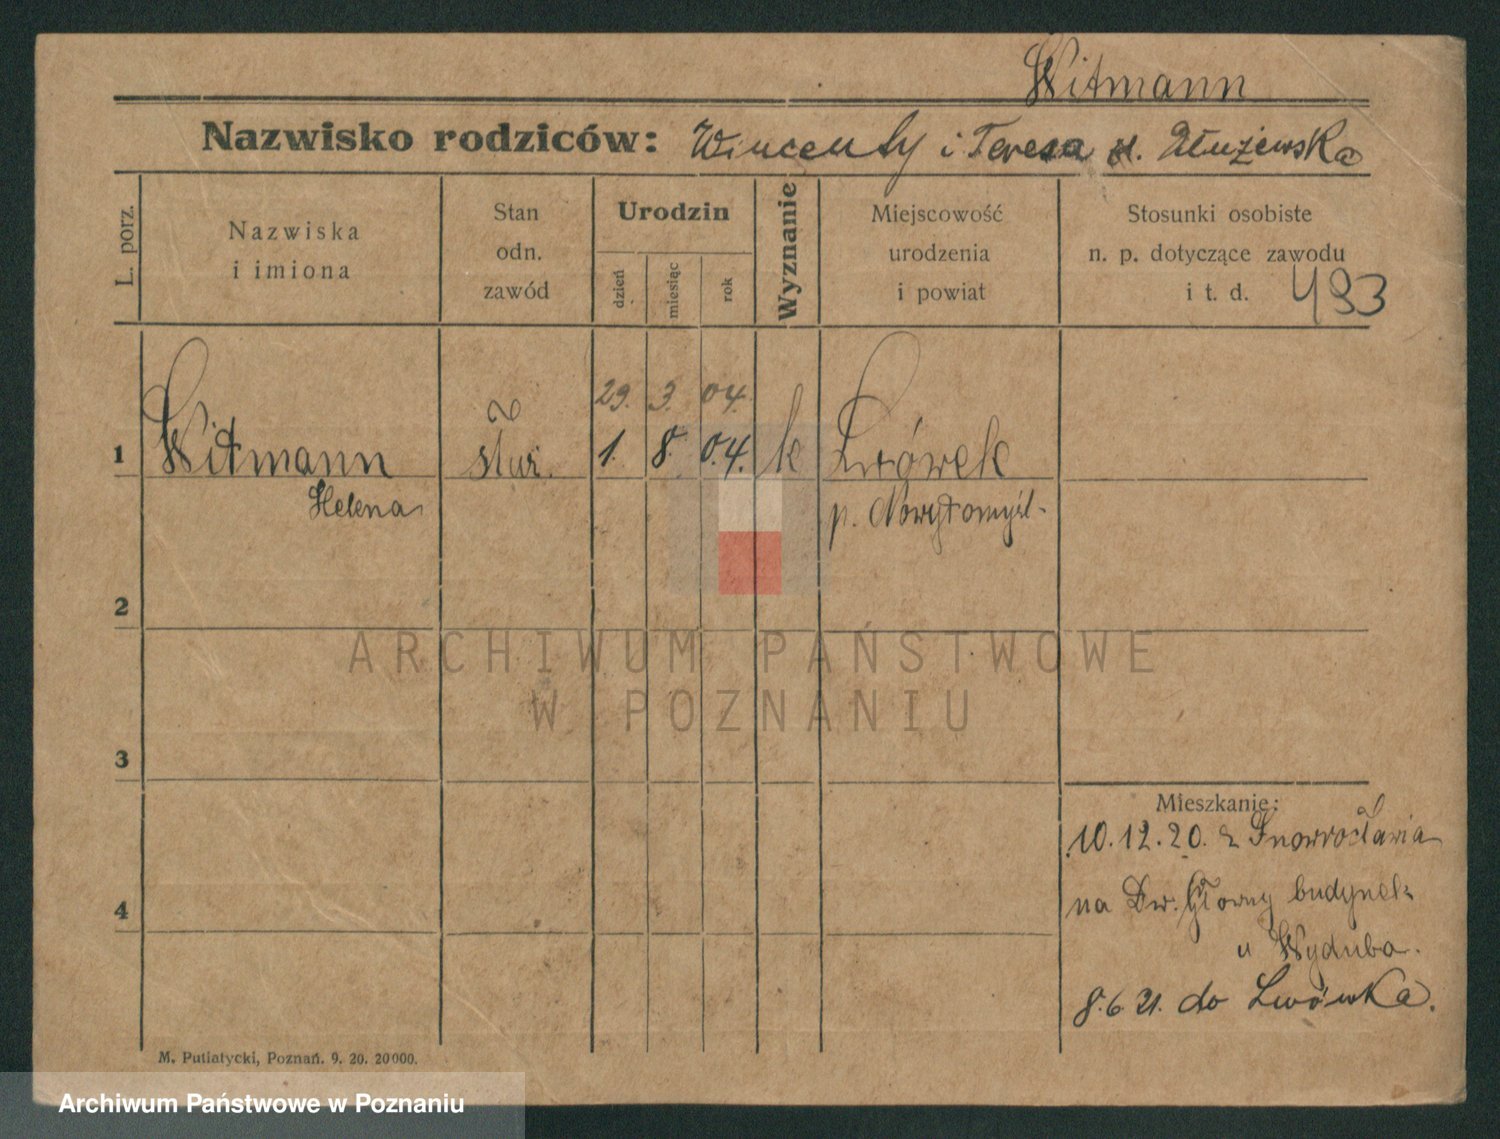 Witmann
Nazwisko rodziców: Wincenty i Teresa d. Dłużewska
L. porz.
Nazwiska
i imiona
Stan
odn.
zawód
Urodzin
dzień
miesiąc
rok
Wyznanie
Miejscowość
urodzenia
i powiat
Stosunki osobiste
n. p. dotyczące zawodu
i t. d. 493
29. 3. 04.
1 Witmann służ. 1. 8. 04. k Lwówek
Helena p. Nowytomyśl
2
ARCHIWUM PAŃSTWOWE
W POZNANIU
3
Mieszkanie:
10.12.20. z Inowrocławia
na Dw. Głowny budynek
4
u Wyduba.
8.6.21. do Lwówka.
M. Putiatycki, Poznań. 9. 20. 20000.
Archiwum Państwowe w Poznaniu